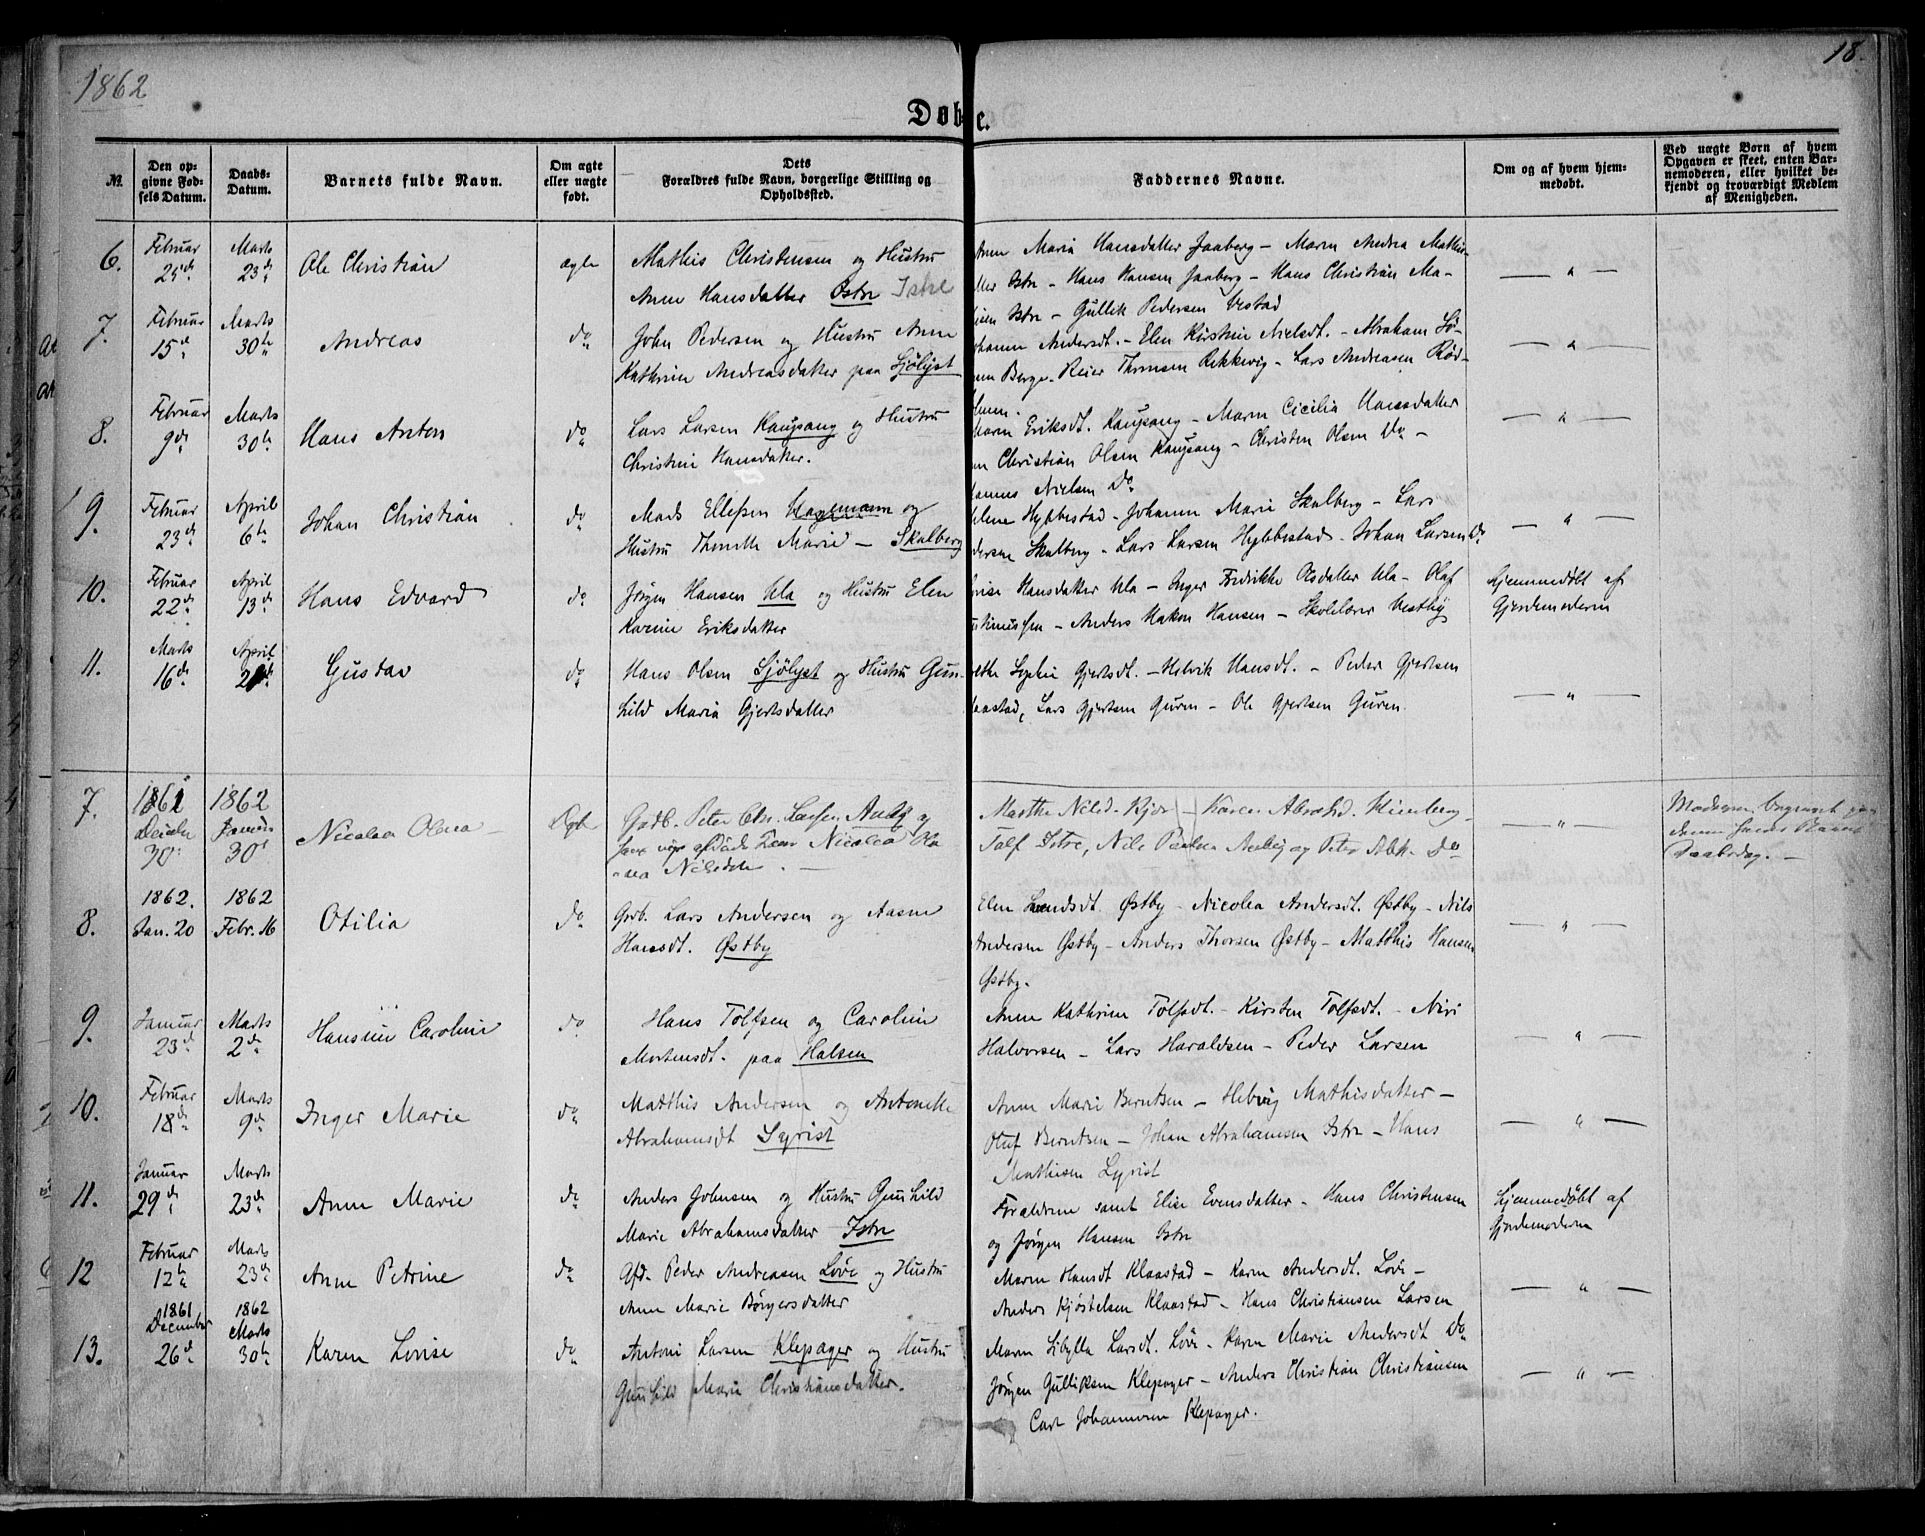 1862
18.
Døb e.
№.
Den opgivne Fødsels Datum.
Daabs-Datum.
Barnets fulde Navn.
Om ægte eller uægte født.
Dets Forældres fulde Navn, borgerlige Stilling og Opholdssted.
Faddernes Navne.
Om og af hvem hjemmedøbt.
Ved uægte Børn af hvem Opgaven er skeet, enten Barnemoderen, eller hvilket bekjendt og troværdigt Medlem af Menigheden.
6. Februar Marts Ole Christian ægte Mathis Christensen og Hustru Anne Maria Hansdatter Jaaberg - Maren Andrea Mathis-
23de Anne Hansdatter Østre Istre Istre - Hans Hansen Jaaberg - Hans Christian Ma-
Istre - Gullik Pedersen Vestad
7. Februar Marts Andreas do John Pedersen og Hustru Anne Andersdt. - Elen Kirstine Nielsdt. - Abraham
15de 30te Kathrine Andreasdatter paa Sjølyst Berge - Reier Thomsen Rekkevig - Lars Andreasen Rød-
8. Februar Marts Hans Anton do Lars Larsen Kaupang og Hustru Eriksdt. Kaupang - Maren Cicilia Hansdatter
9de 30te Christine Hansdatter. Christian Olsen Kaupang - Christen Olsen Do -
Nielsen Do
9. Februar April Johan Christian do Mads Ellefsen og Hybbestad - Johanne Marie Skalberg - Lars
23de 6te Hustru Marie - Skalberg Skalberg - Lars Larsen Hybbestad - Johan Larsen Do
10. Februar April Hans Edvard do Jørgen Hansen Ula og Hustru Elen Hansdatter Ula - Inger Fredrikke Olsdatter Ula - Olaf Hjemmedøbt af
22de 13de Karine Eriksdatter - Anders Hakon Hansen - Skolelærer Vestby Gjordemoderen
11. Marts April Gustav do Hans Olsen Sjølyst og Hustru Gun- Sophie Gjertsdt. - Helvik Hansdt. - Peder Gjertsen
16de hild Maria Gjertsdatter Lars Gjertsen Guren - Ole Gjertsen Guren.
7. 1861 1862 Nicolea Olena Ægte Gadb. Peter Chr. Larsen og Marthe Nilsd. Kjør - Karen
30 30 Nicolea Istre, Nils og Peter Do
Daabsdag. -
8. 1862. 1862 Otilia Do Lars Andersen og Aasne Elen Østby - Nicolea Andersdt. Østby - Nils
Jan. 20 Febr. 16 Hansdt. Østby Andersen Østby - Anders Thorsen Østby - Matthis Hansen
Østby.
9. Januar Marts Hansine Caroline do Hans Tolfsen og Caroline Anne Kathrine Tolfsdt. - Kirsten Tolfsdt. - Niri
23de 2den Mortensdt. paa Halsen Halvorsen - Lars Haraldsen - Peder Larsen
10. Februar Marts Inger Marie do Matthis Andersen og Antonette Anne Marie Berntsen - Hedvig Mathisdatter -
18de 9de Abrahamsdt Syrist Oluf Berntsen - Johan Abrahamsen Istre - Hans
Mathisen Syrist
11. Januar Marts Anne Marie do Anders Johnsen og Hustru Gunhild Forældrene samt Elise Evensdatter - Hans Christensen Hjemmedøbt af
29de 23de Marie Abrahamsdatter Istre og Jørgen Hansen Istre Gjordemoderen
12 Februar Marts Anne Petrine do Afd. Peder Andreasen Løve og Hustru Maren Hansdt Klaastad - Karen Andersdt. Løve -
12te 23de Anne Marie Børgersdatter Anders Kjøstelsen Klaastad - Hans Christiansen Larsen
13. 1861 December 1862 Marts Karen Lovise do Antoni Larsen Klepager og Hustru Maren Sibylla Larsdt. Løve - Karen Marie Andersdt Do
26de 30te Gunhild Marie Christiansdatter. Jørgen Gulliksen Klepager - Anders Christian Christiansen
Carl Johannesen Klepager.